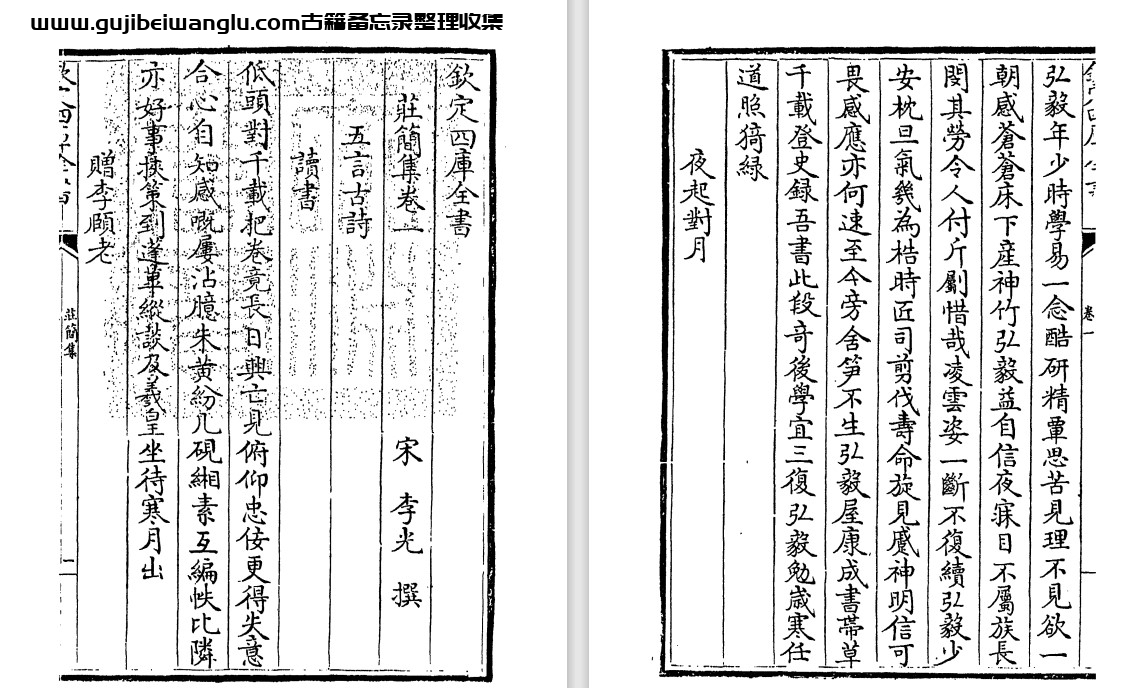 www.gujibeiwanglu.com古籍备忘录整理收集
欽定四庫全書
莊簡集卷一 宋 李光 撰
五言古詩
讀書
低頭對千載把卷竟長日興亡見俯仰忠佞更得失意
合心自知感慨屢沾臆朱黄紛几硯緗素互編帙比隣
亦好事挾策到蓬蓽縱談及羲皇坐待寒月出
贈李頤老
莊簡集
一
卷一
弘毅年少時學易一念酷研精覃思苦見理不見欲一
朝感蒼蒼床下産神竹弘毅益自信夜寐目不屬族長
閔其勞令人付斤斸惜哉凌雲姿一斷不復續弘毅少
安枕旦氣幾為梏時匠司剪伐壽命旋見蹙神明信可
畏感應亦何速至今旁舍笋不生弘毅屋康成書帶草
千載登史録吾書此段竒後學宜三復弘毅勉嵗寒任
道照猗緑
夜起對月